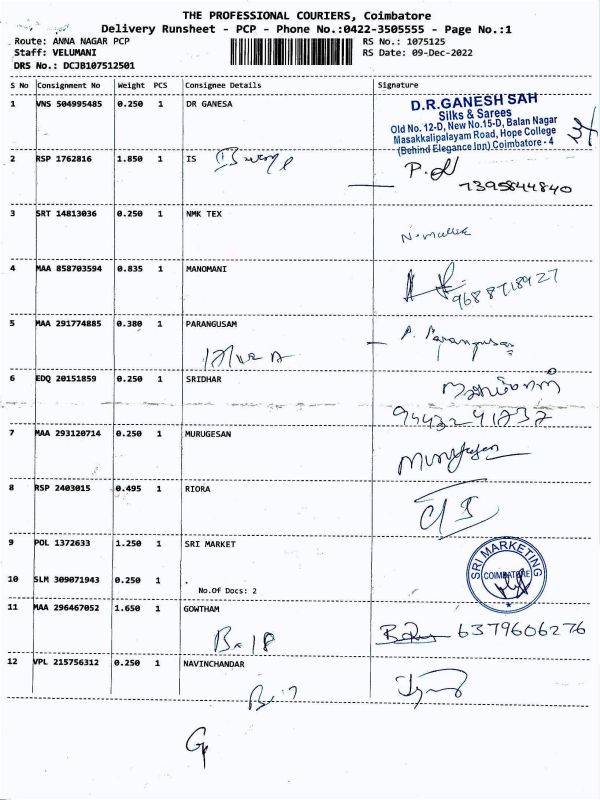 THE PROFESSIONAL COURIERS, Coimbatore
Delivery Runsheet - PCP - Phone No.:0422-3505555 - Page No.:1
Route: ANNA NAGAR PCP
RS No.: 1075125
Staff: VELUMANI
RS Date: 09-Dec-2022
DRS No.: DCJB107512501
S No Consignment No Weight PCS Consignee Details Signature
1 VNS 504995485 0.250 1 DR GANESA
D.R.GANESH SAH
Silks & Sarees
Old No. 12-D, New No.15-D, Balan Nagar
Masakkalipalayam Road, Hope College
(Behind Elegance Inn) Coimbatore - 4
2 RSP 1762816 1.850 1 IS
7395844840
3 SRT 14813036 0.250 1 NMK TEX
4 MAA 858703594 0.835 1 MANOMANI
9688718927
5 MAA 291774885 0.380 1 PARANGUSAM
P. Parangusam
6 EDQ 20151859 0.250 1 SRIDHAR
7 MAA 293120714 0.250 1 MURUGESAN
Murugesan
8 RSP 2403015 0.495 1 RIORA
9 POL 1372633 1.250 1 SRI MARKET
SRI MARKETING
COIMBATORE
10 SLM 309071943 0.250 1
No.Of Docs: 2
11 MAA 296467052 1.650 1 GOWTHAM
6379606276
12 VPL 215756312 0.250 1 NAVINCHANDAR